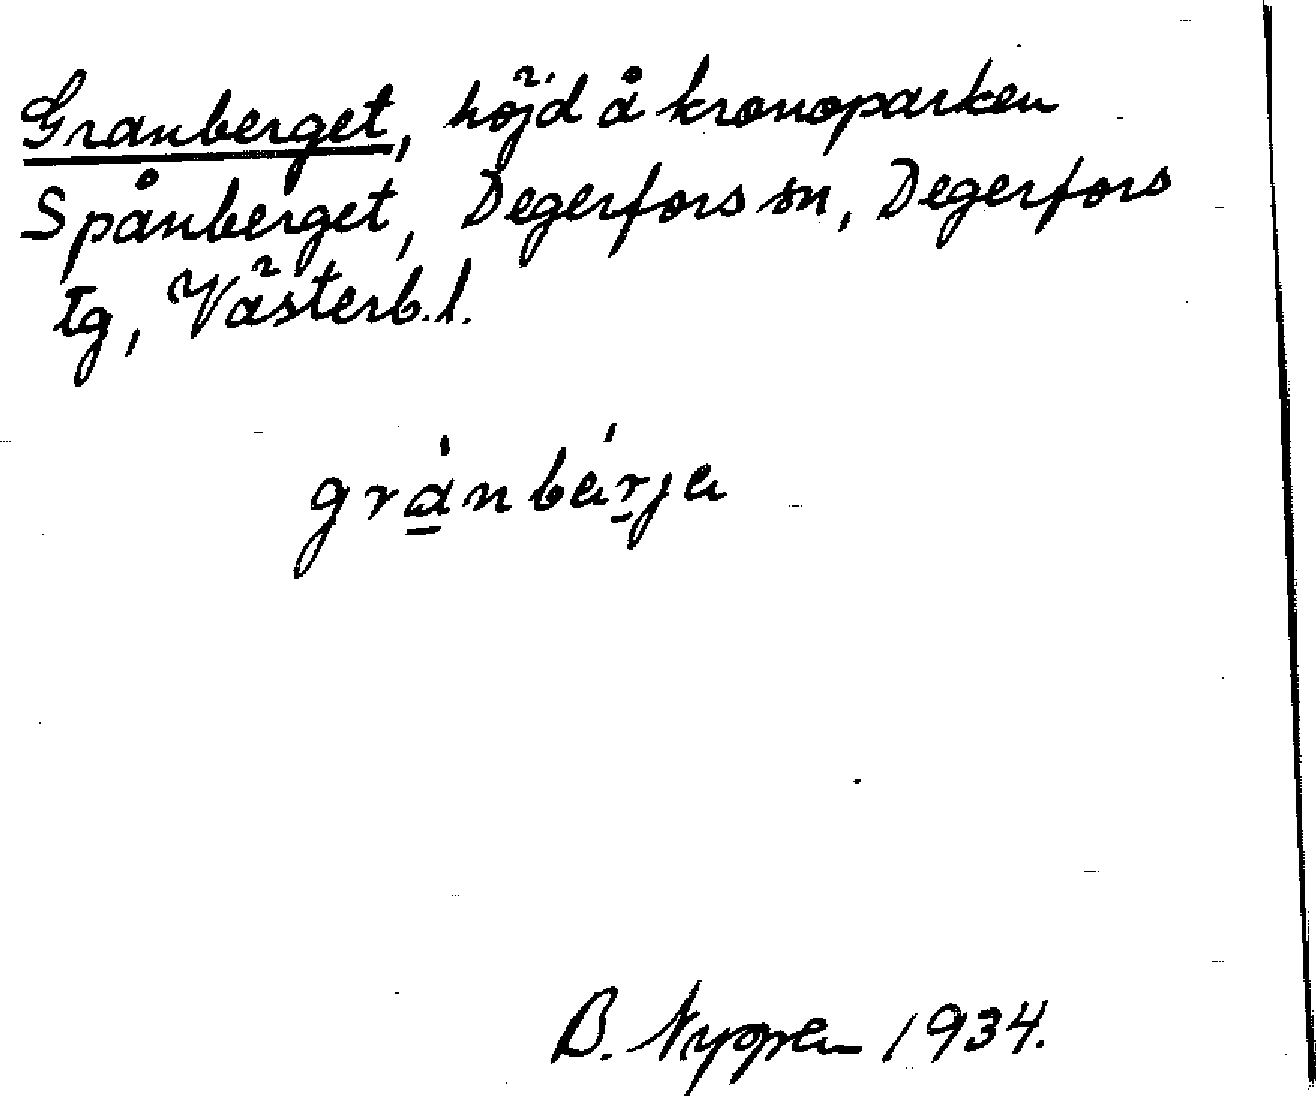 Granberget, höjd å kronoparken
Spånberget, Degerfors sn, Degerfors
tg, Västerb. l.
gránbárja
B. Nyppen 1934.